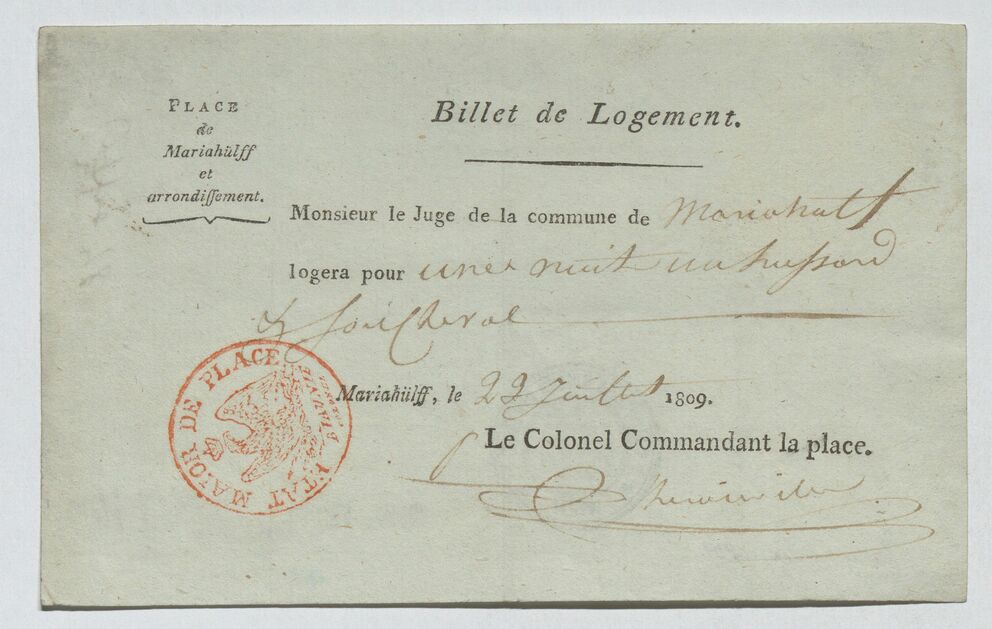 PLACE
de
Mariahülff
et
arrondiſſement.
Billet de Logement.
Monsieur le Juge de la commune de Mariahulf
logera pour une nuit un hussard
& son Cheval
Mariahülff, le 22 Juillet 1809.
Le Colonel Commandant la place.
ETAT MAJOR DE PLACE